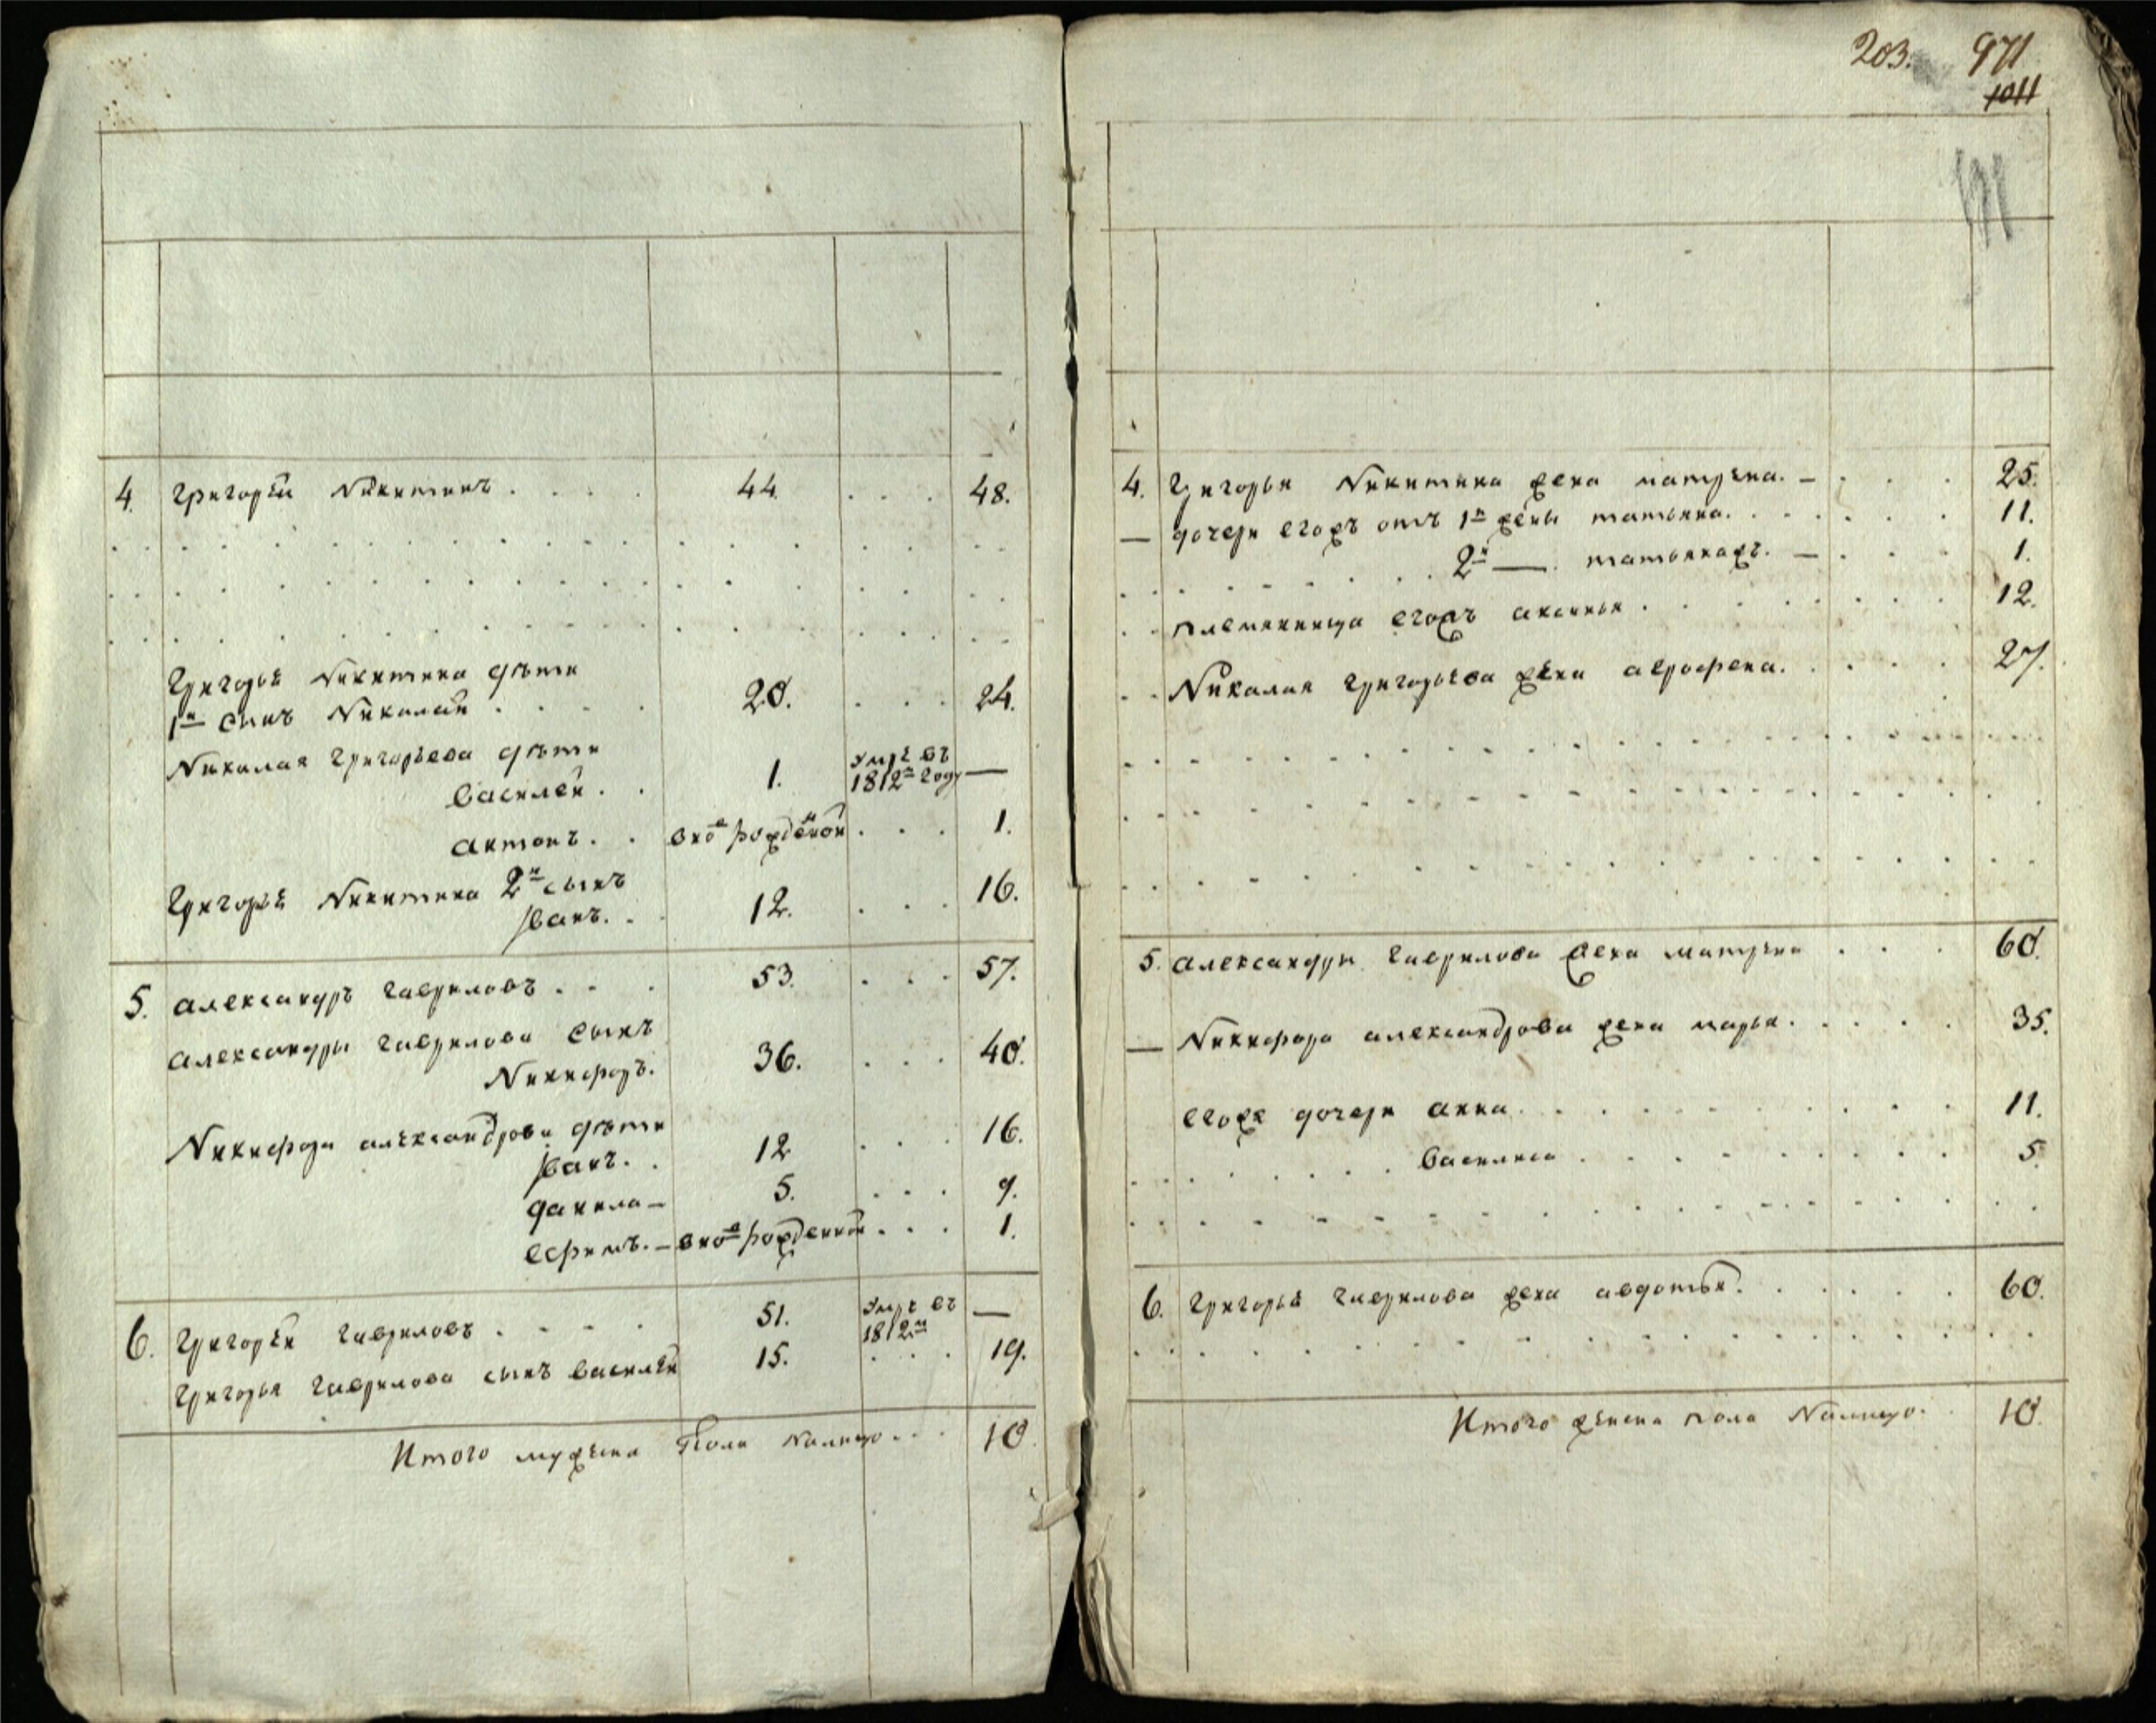 203. 971
1011
4. Григорѣй Никитинъ . . . . 44. . . . 48.
Григорья Никитина дѣти
1й сынъ Николай . . . 20. . . . 24.
Николая Григорьева дѣти
Василей . . 1. умре въ 1812м году —
антонъ. . вно рожденой . . . 1.
Григорья Никитина 2й сынъ
Иванъ. . 12. . . . 16.
5. александръ Гавриловъ . . . 53. . . . 57.
александры Гаврилова сынъ
Никифоръ. 36. . . . 40.
Никифора александрова дѣти
Иванъ. . 12 . . . 16.
данила — 5. . . . 9.
ефимъ. — вно рожденной . . . 1.
6. Григорѣй Гавриловъ . . . . 51. умре въ 1812м —
Григорья Гаврилова сынъ василѣй 15. . . . 19.
Итого мужеска пола налицо . . . 10.
4. Григорья Никитина жена матрена. — . . . 25.
— дочери егожъ отъ 1й жены татьяна. . . . . . . 11.
2й — татьянажъ. — . . . 1.
племянница егожъ аксинья . . . . . . . 12.
Николая Григорьева жена аграфена. . . . . 27.
5. александры Гаврилова жена матрена . . . 60.
— Никифора александрова жена марья. . . . . 35.
егоже дочери анна. . . . . . . . . 11.
василиса . . . . . . . . 5.
6. Григорья Гаврилова жена авдотья. . . . . . 60.
Итого женска пола налицо. . 10.